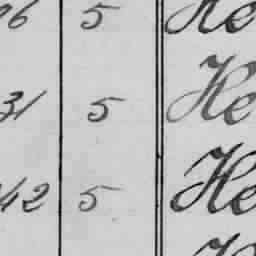 96 5 He
31 5 He
42 5 He